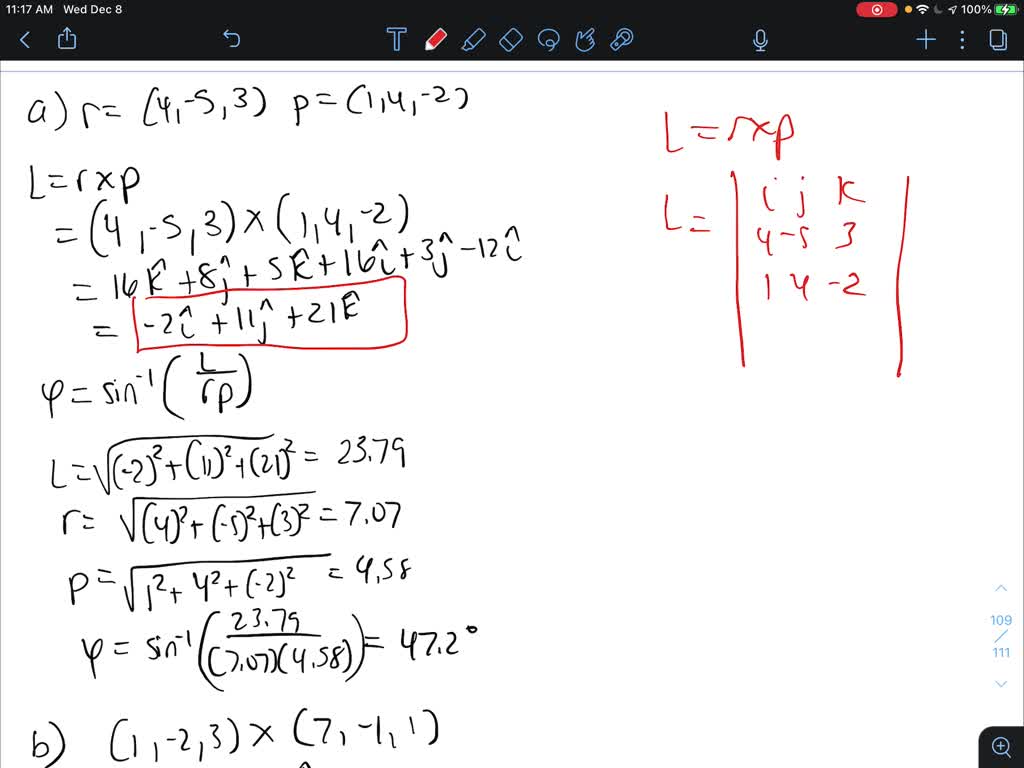 11:17 AM Wed Dec 8
100%
T
a) r = (4,-5,3) p = (1,4,-2)
L = r x p
= (4,-5,3) x (1,4,-2)
= 16k̂ + 8ĵ + 5k̂ + 16î + 3ĵ - 12î
= -2î + 11ĵ + 21k̂
φ = sin⁻¹(L/rp)
L = √(-2)² + (11)² + (21)² = 23.79
r = √(4)² + (-5)² + (3)² = 7.07
p = √1² + 4² + (-2)² = 4.58
φ = sin⁻¹(23.79/(7.07)(4.58)) = 47.2°
b) (1,-2,3) x (7,-1,1)
L = r x p
L = | i j k |
4 -5 3
1 4 -2
109
/
111